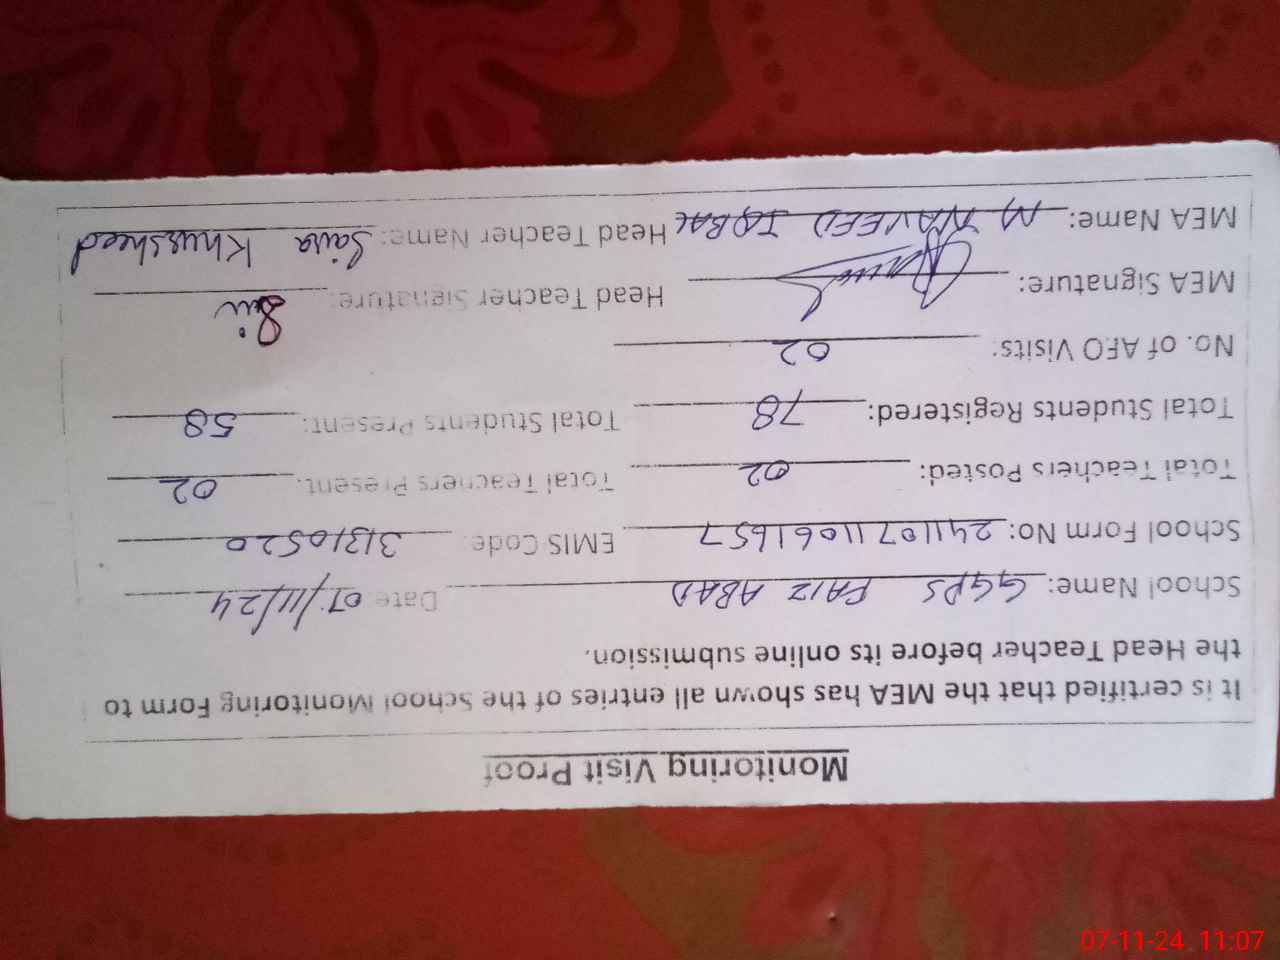 Monitoring Visit Proof
It is certified that the MEA has shown all entries of the School Monitoring Form to
the Head Teacher before its online submission.
School Name: GGPS FAIZ ABAD Date 07/11/24
School Form No: 2411071106 1657 EMIS Code: 31310520
Total Teachers Posted: 02 Total Teachers Present: 02
Total Students Registered: 78 Total Students Present: 58
No. of AFO Visits: 02
MEA Signature: Head Teacher Signature:
MEA Name: M NAVEED IQBAL Head Teacher Name: Saira Khursheed
07-11-24 11:07